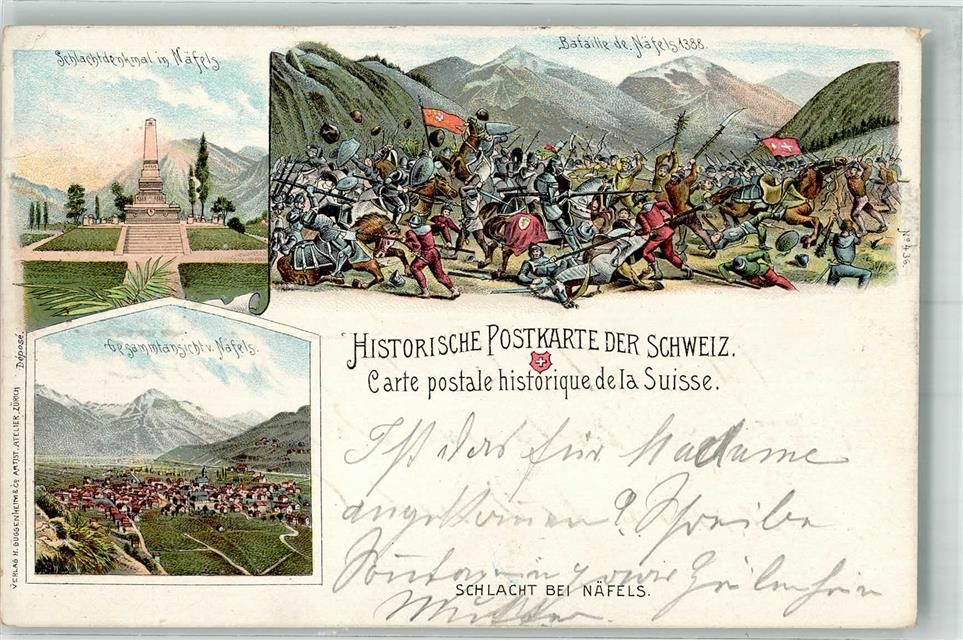 Schlachtdenkmal in Näfels
Bataille de Näfels 1388
No 436.
Gesammtansicht v. Näfels.
HISTORISCHE POSTKARTE DER SCHWEIZ.
Carte postale historique de la Suisse.
Ist das für Madame
angekommen? Schreibe
Sonntag
SCHLACHT BEI NÄFELS.
Mutter
VERLAG H. GUGGENHEIM & Co ARTIST. ATELIER, ZÜRICH Déposé.